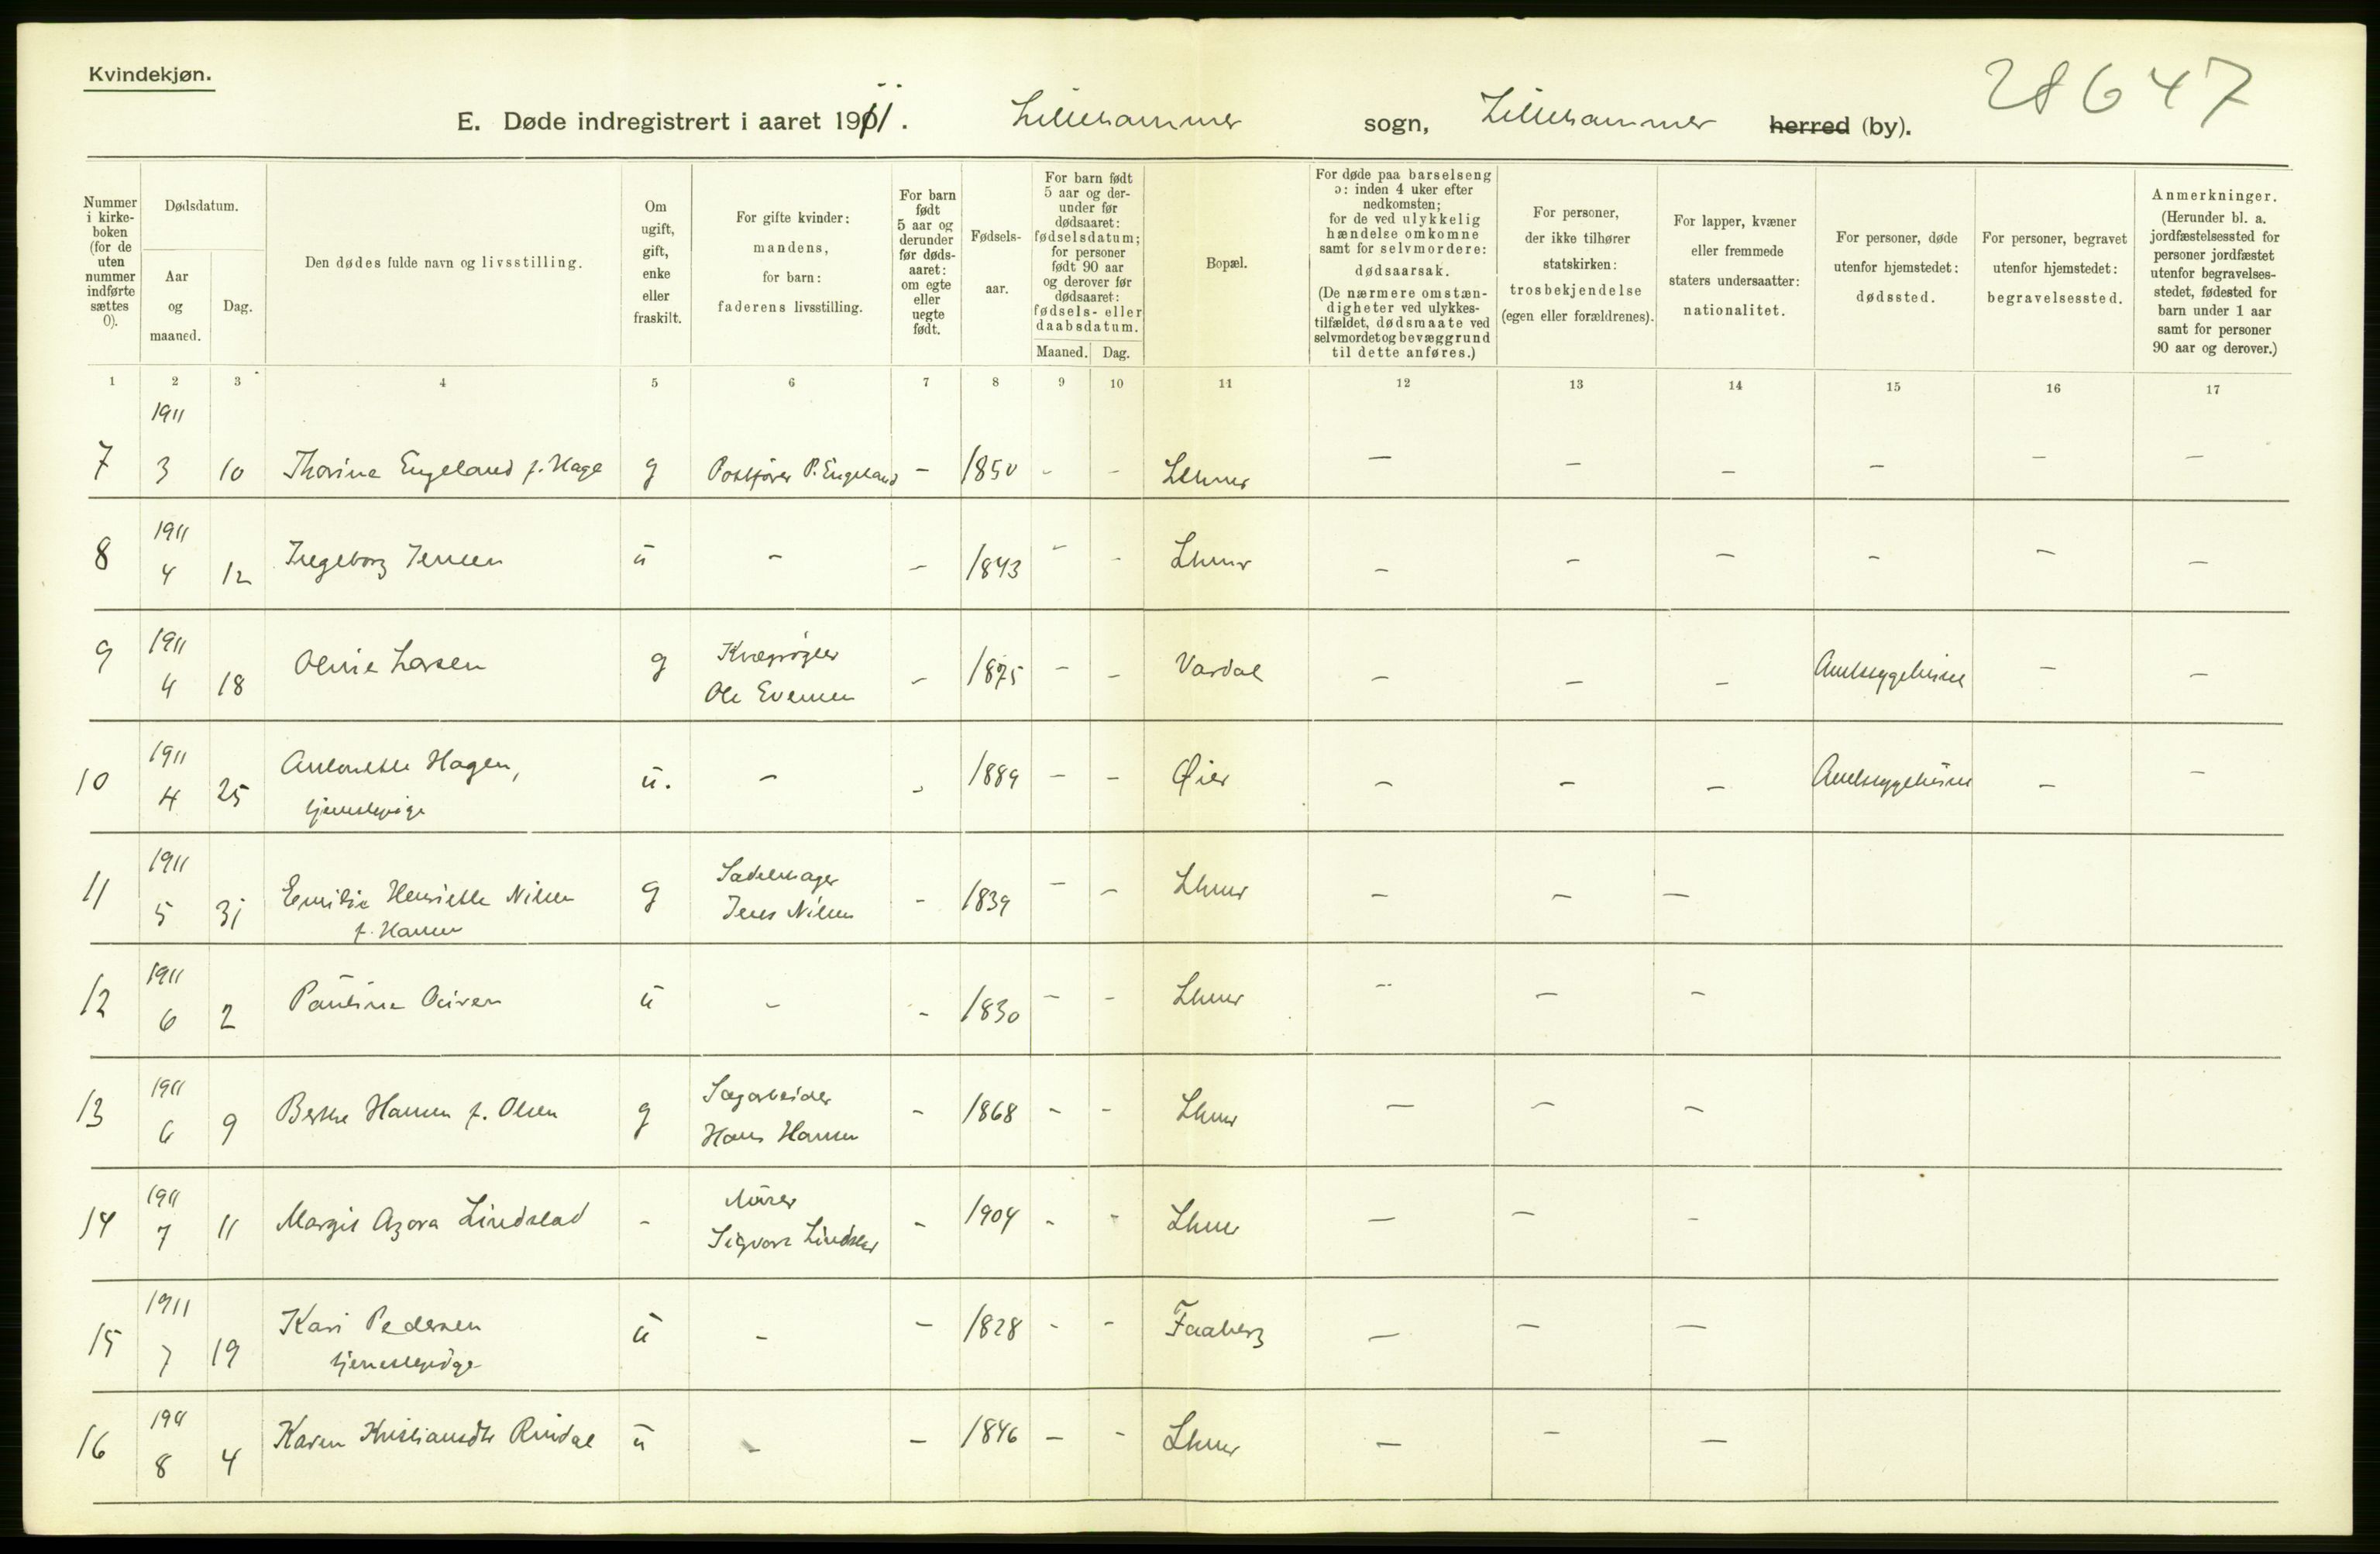 Kvindekjøn.
28647
E. Døde indregistrert i aaret 1911. Lillehammer sogn, Lillehammer herred (by).
Nummer i kirkeboken (for de uten nummer indførte sættes 0).
Dødsdatum.
Aar og maaned.
Dag.
Den dødes fulde navn og livsstilling.
Om ugift, gift, enke eller fraskilt.
For gifte kvinder: mandens, for barn: faderens livsstilling.
For barn født 5 aar og derunder før dødsaaret: om egte eller uegte født.
Fødselsaar.
For barn født 5 aar og derunder før dødsaaret: fødselsdatum; for personer født 90 aar og derover før dødsaaret: fødsels- eller daabsdatum.
Maaned. Dag.
Bopæl.
For døde paa barselseng ɔ: inden 4 uker efter nedkomsten; for de ved ulykkelig hændelse omkomne samt for selvmordere: dødsaarsak. (De nærmere omstændigheter ved ulykkestilfældet, dødsmaate ved selvmordet og bevæggrund til dette anføres.)
For personer, der ikke tilhører statskirken: trosbekjendelse (egen eller forældrenes).
For lapper, kvæner eller fremmede staters undersaatter: nationalitet.
For personer, døde utenfor hjemstedet: dødssted.
For personer, begravet utenfor hjemstedet: begravelsessted.
Anmerkninger. (Herunder bl. a. jordfæstelsessted for personer jordfæstet utenfor begravelsesstedet, fødested for barn under 1 aar samt for personer 90 aar og derover.)
1 2 3 4 5 6 7 8 9 10 11 12 13 14 15 16 17
1911
7 3 10 Thorine Engeland f. Hage g Postfører P. Engeland - 1850 - - Lhmr - - - - - -
1911
8 4 12 Ingeborg Jensen u - - 1843 - - Lhmr - - - - - -
1911
9 4 18 Oline Larsen g Kvægrøgter
Ole Evensen - 1875 - - Vardal - - - Amtssygehuset - -
1911
10 4 25 Antonette Hagen, u. - - 1889 - - Øier - - - Amtssygehuset - -
tjenestepige
1911
11 5 31 Emilie Henriette Nilsen g Sadelmager
f. Hansen Jens Nilsen - 1839 - - Lhmr - - -
1911
12 6 2 Pauline u - - 1830 - - Lhmr - - -
1911
13 6 9 Berthe Hansen f. Olsen g Sagarbeider
Hans Hansen - 1868 - - Lhmr - - -
1911
14 7 11 Margit Azora Lindstad - Murer
Sigvart Lindstad - 1904 - - Lhmr - - -
1911
15 7 19 Kari Pedersen u - - 1828 - - Faaberg - - -
tjenestepige
1911
16 8 4 Karen Kristiansdtr Rindal u - - 1846 - - Lhmr - - -